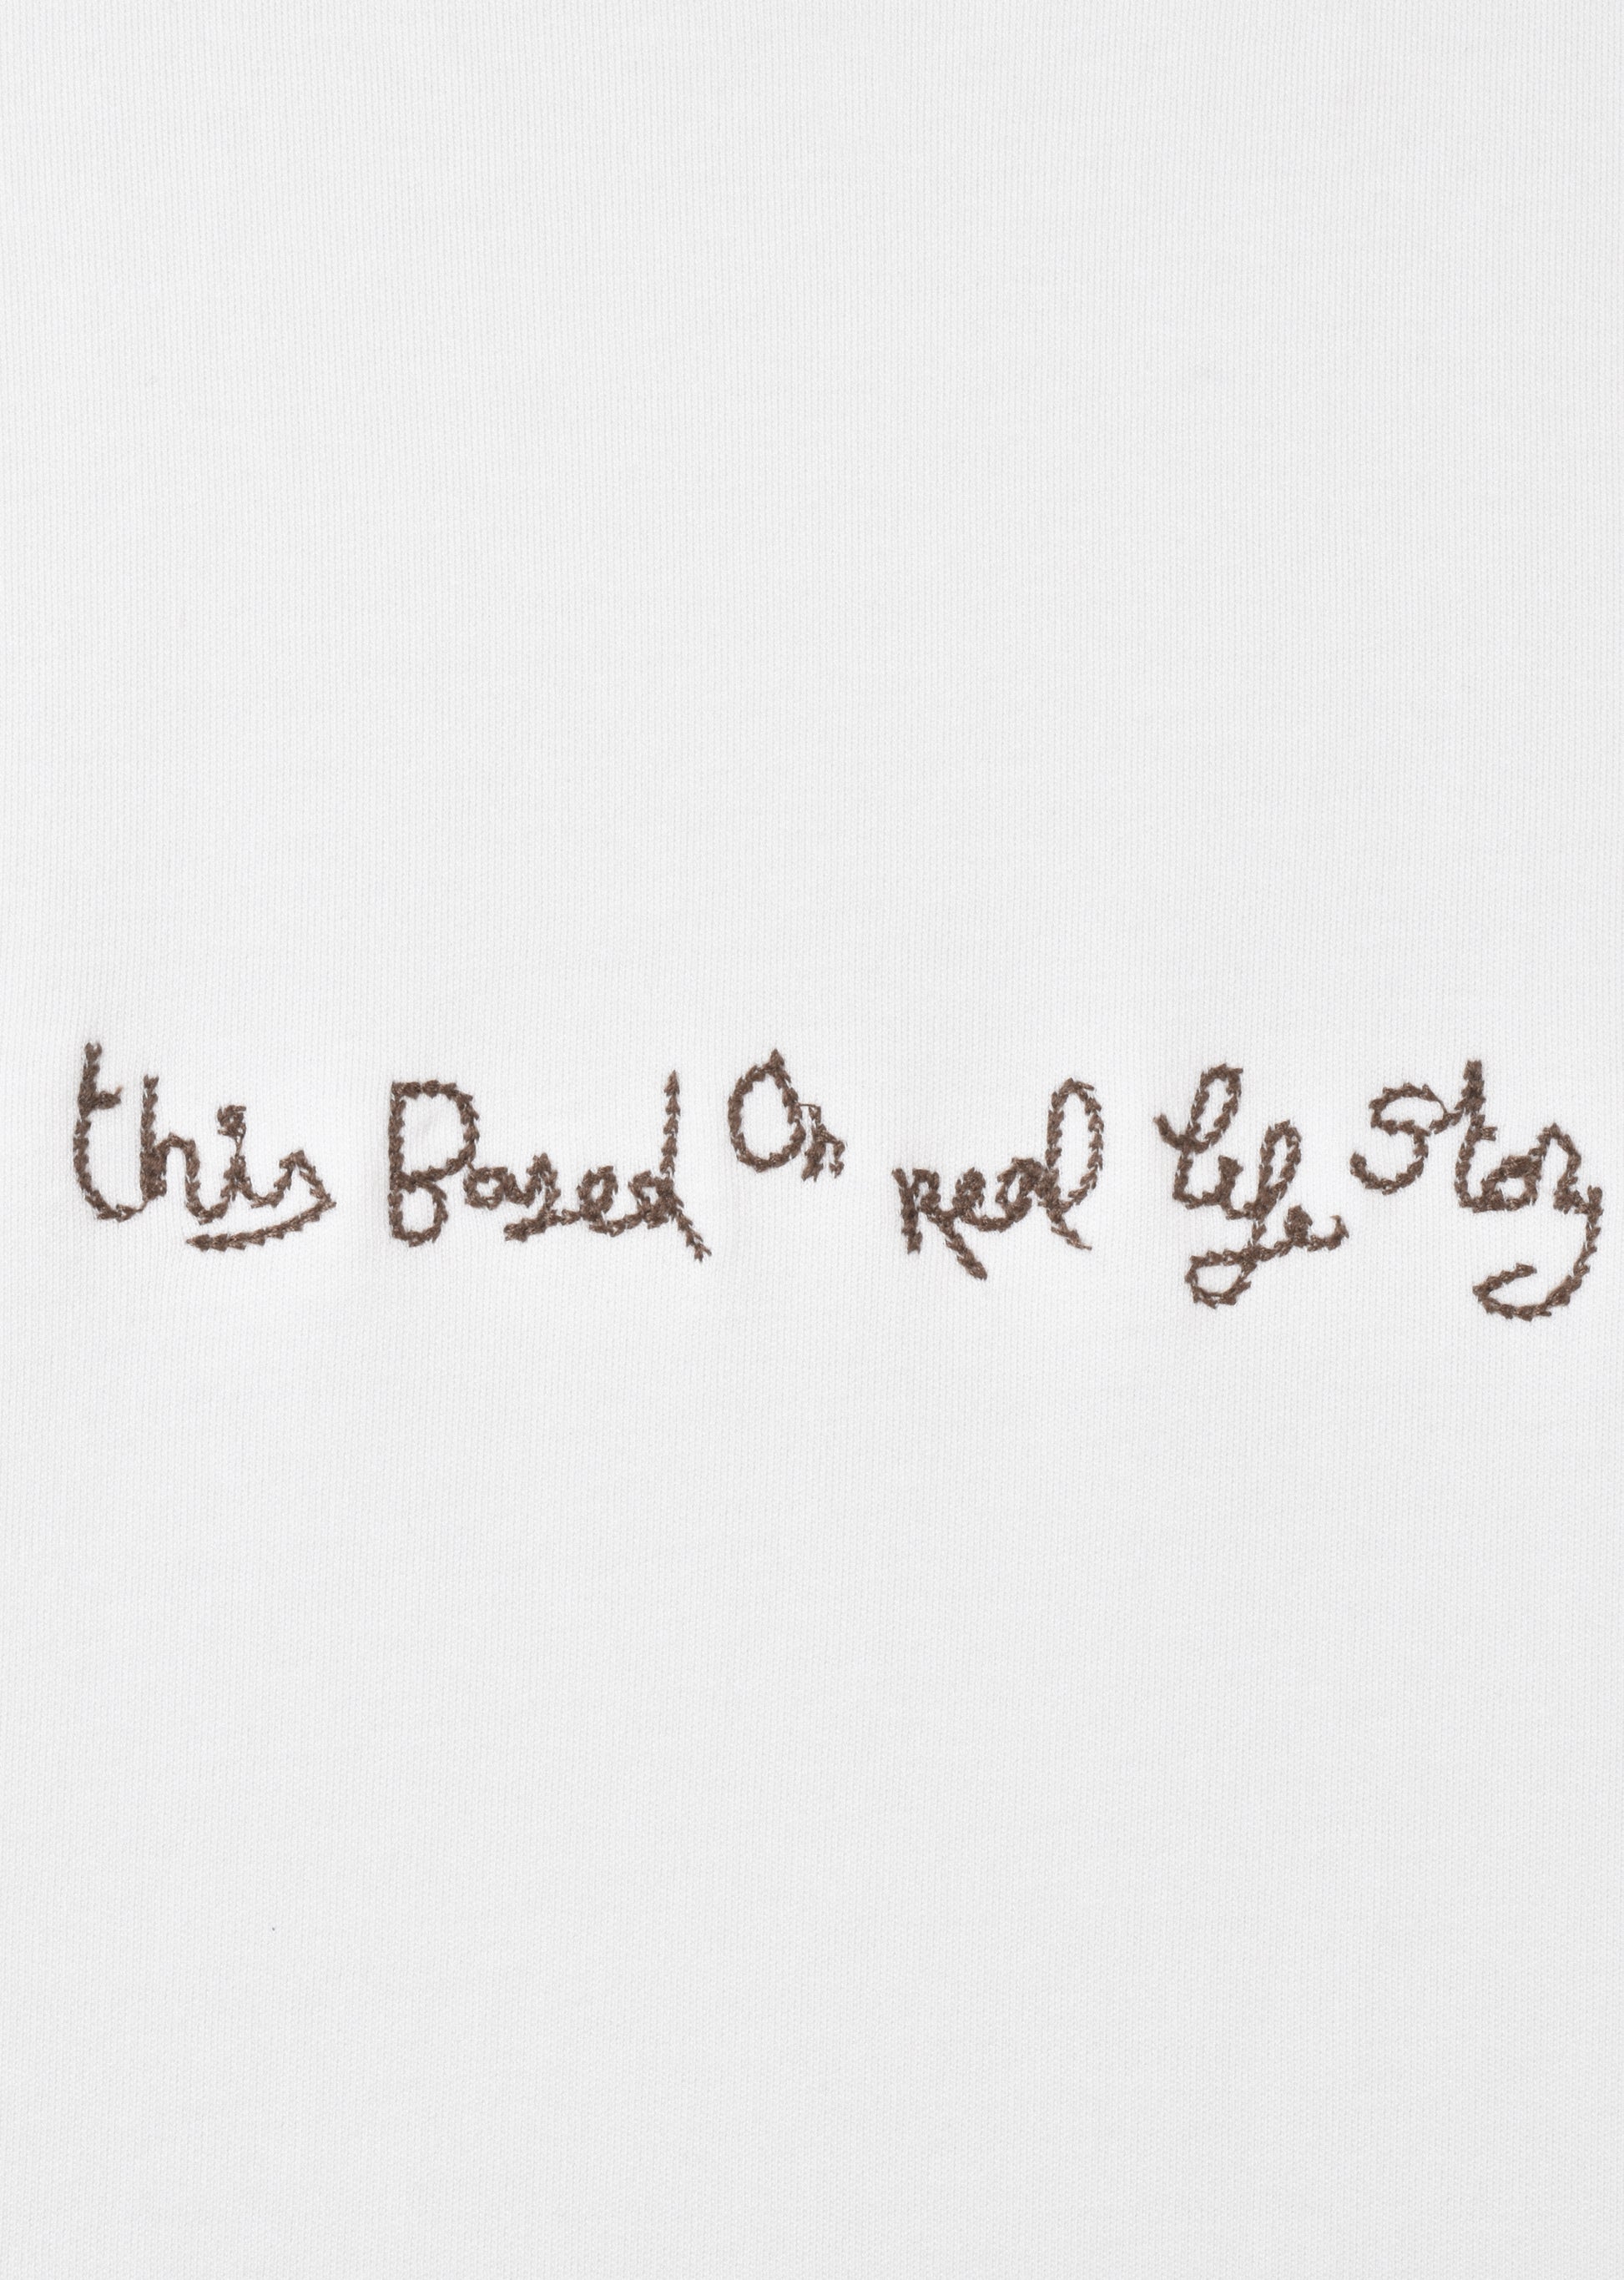 this Based On real life Story